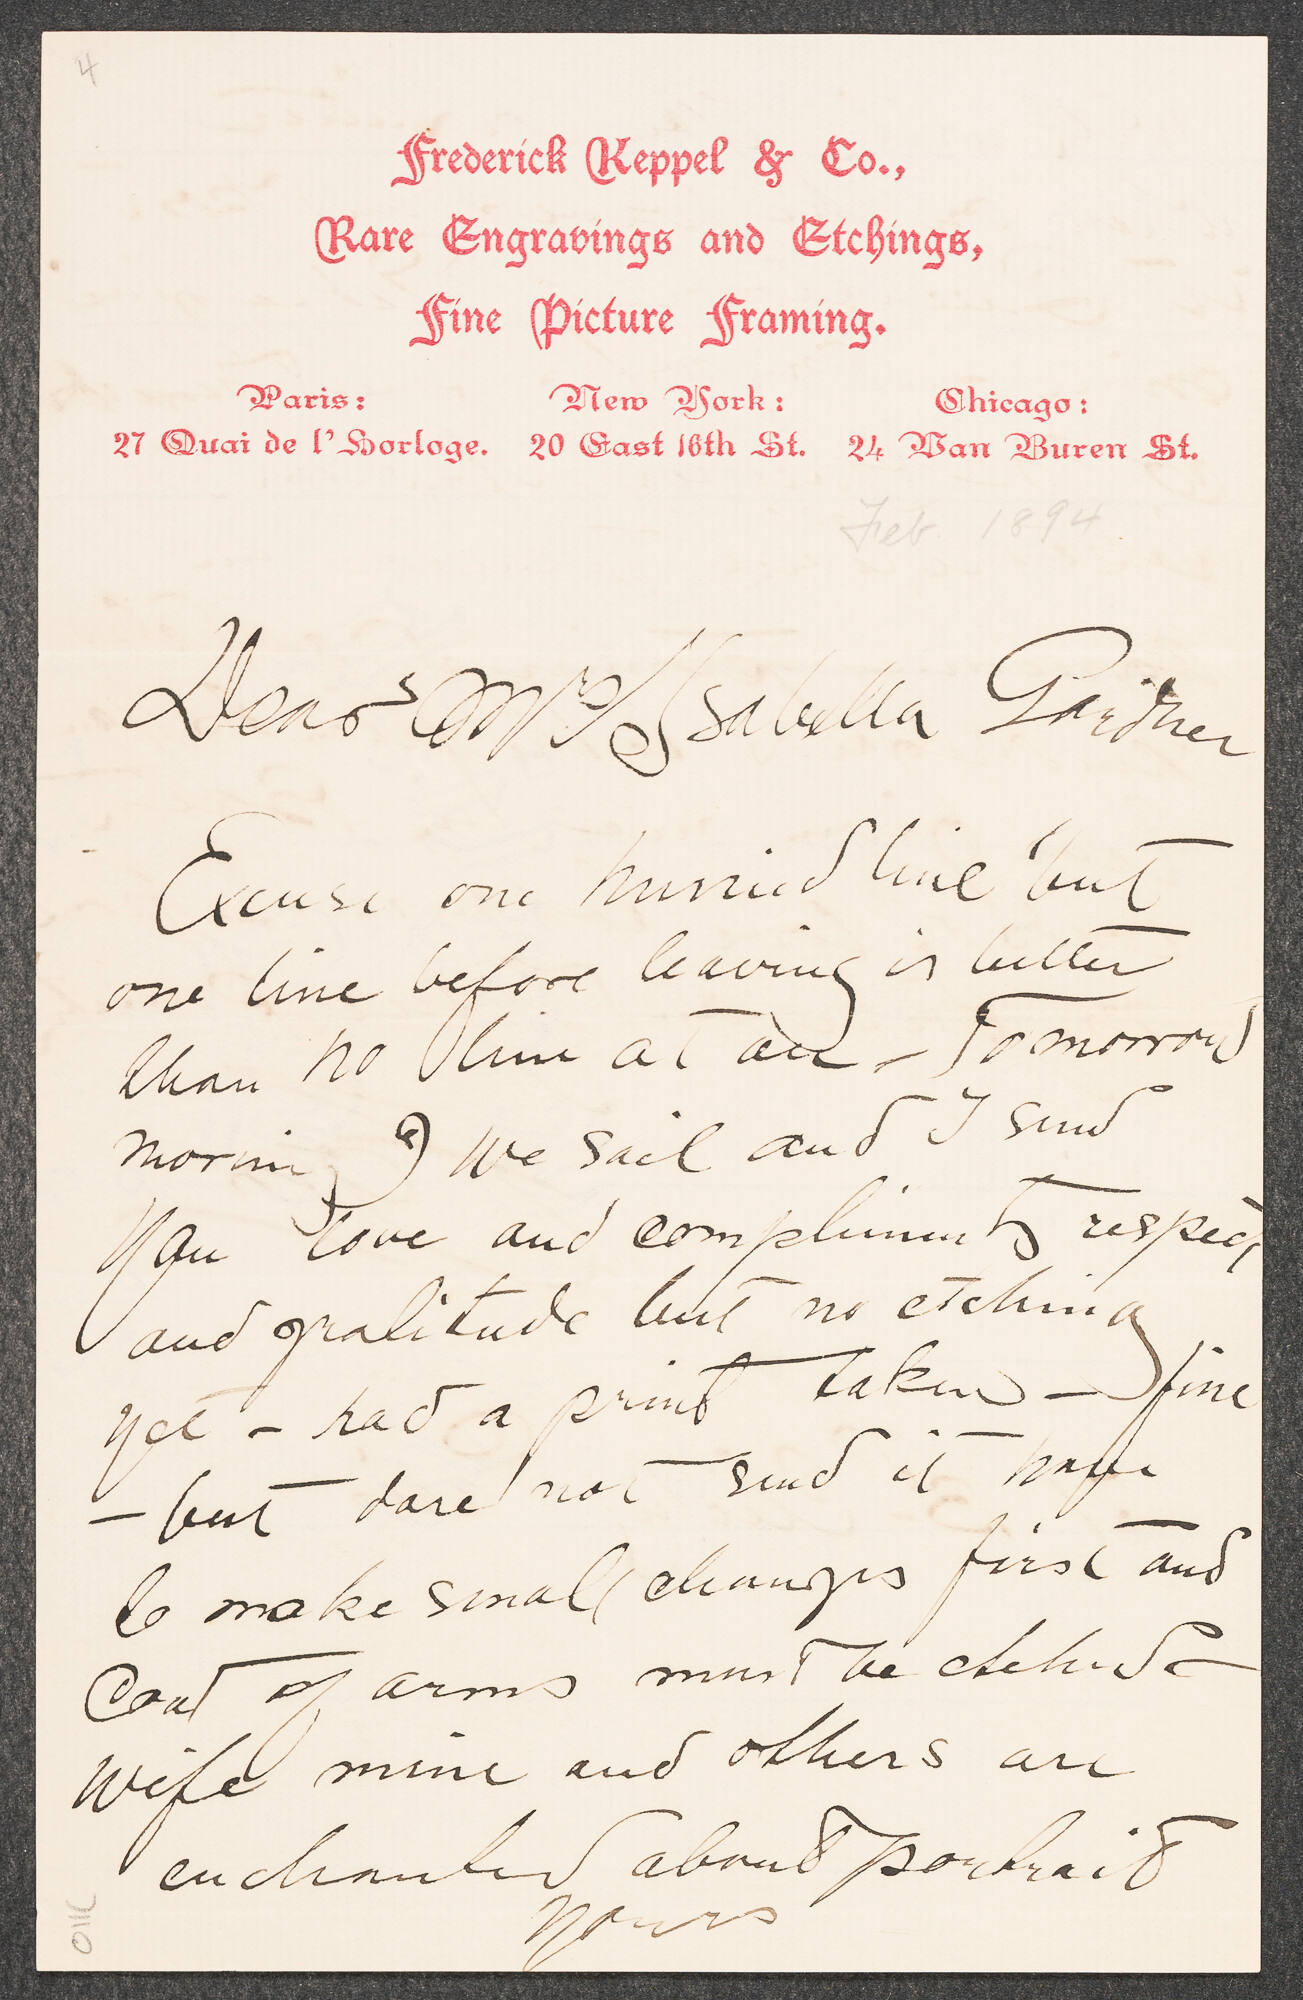 4
Frederick Keppel & Co.,
Rare Engravings and Etchings,
Fine Picture Framing.
Paris: New York: Chicago:
27 Quai de l'Horloge. 20 East 16th St. 24 Van Buren St.
Feb. 1894
Dear Mrs Isabella Gardner
Excuse one hurried line but
one line before leaving is better
than no line at all – Tomorrow
morning we sail and I send
you love and compliments respect
and gratitude but no etching
yet – had a print taken – fine
– but dare not send it have
to make small changes first and
Coat of arms must be etched –
wife mine and others are
enchanted about portrait
yours